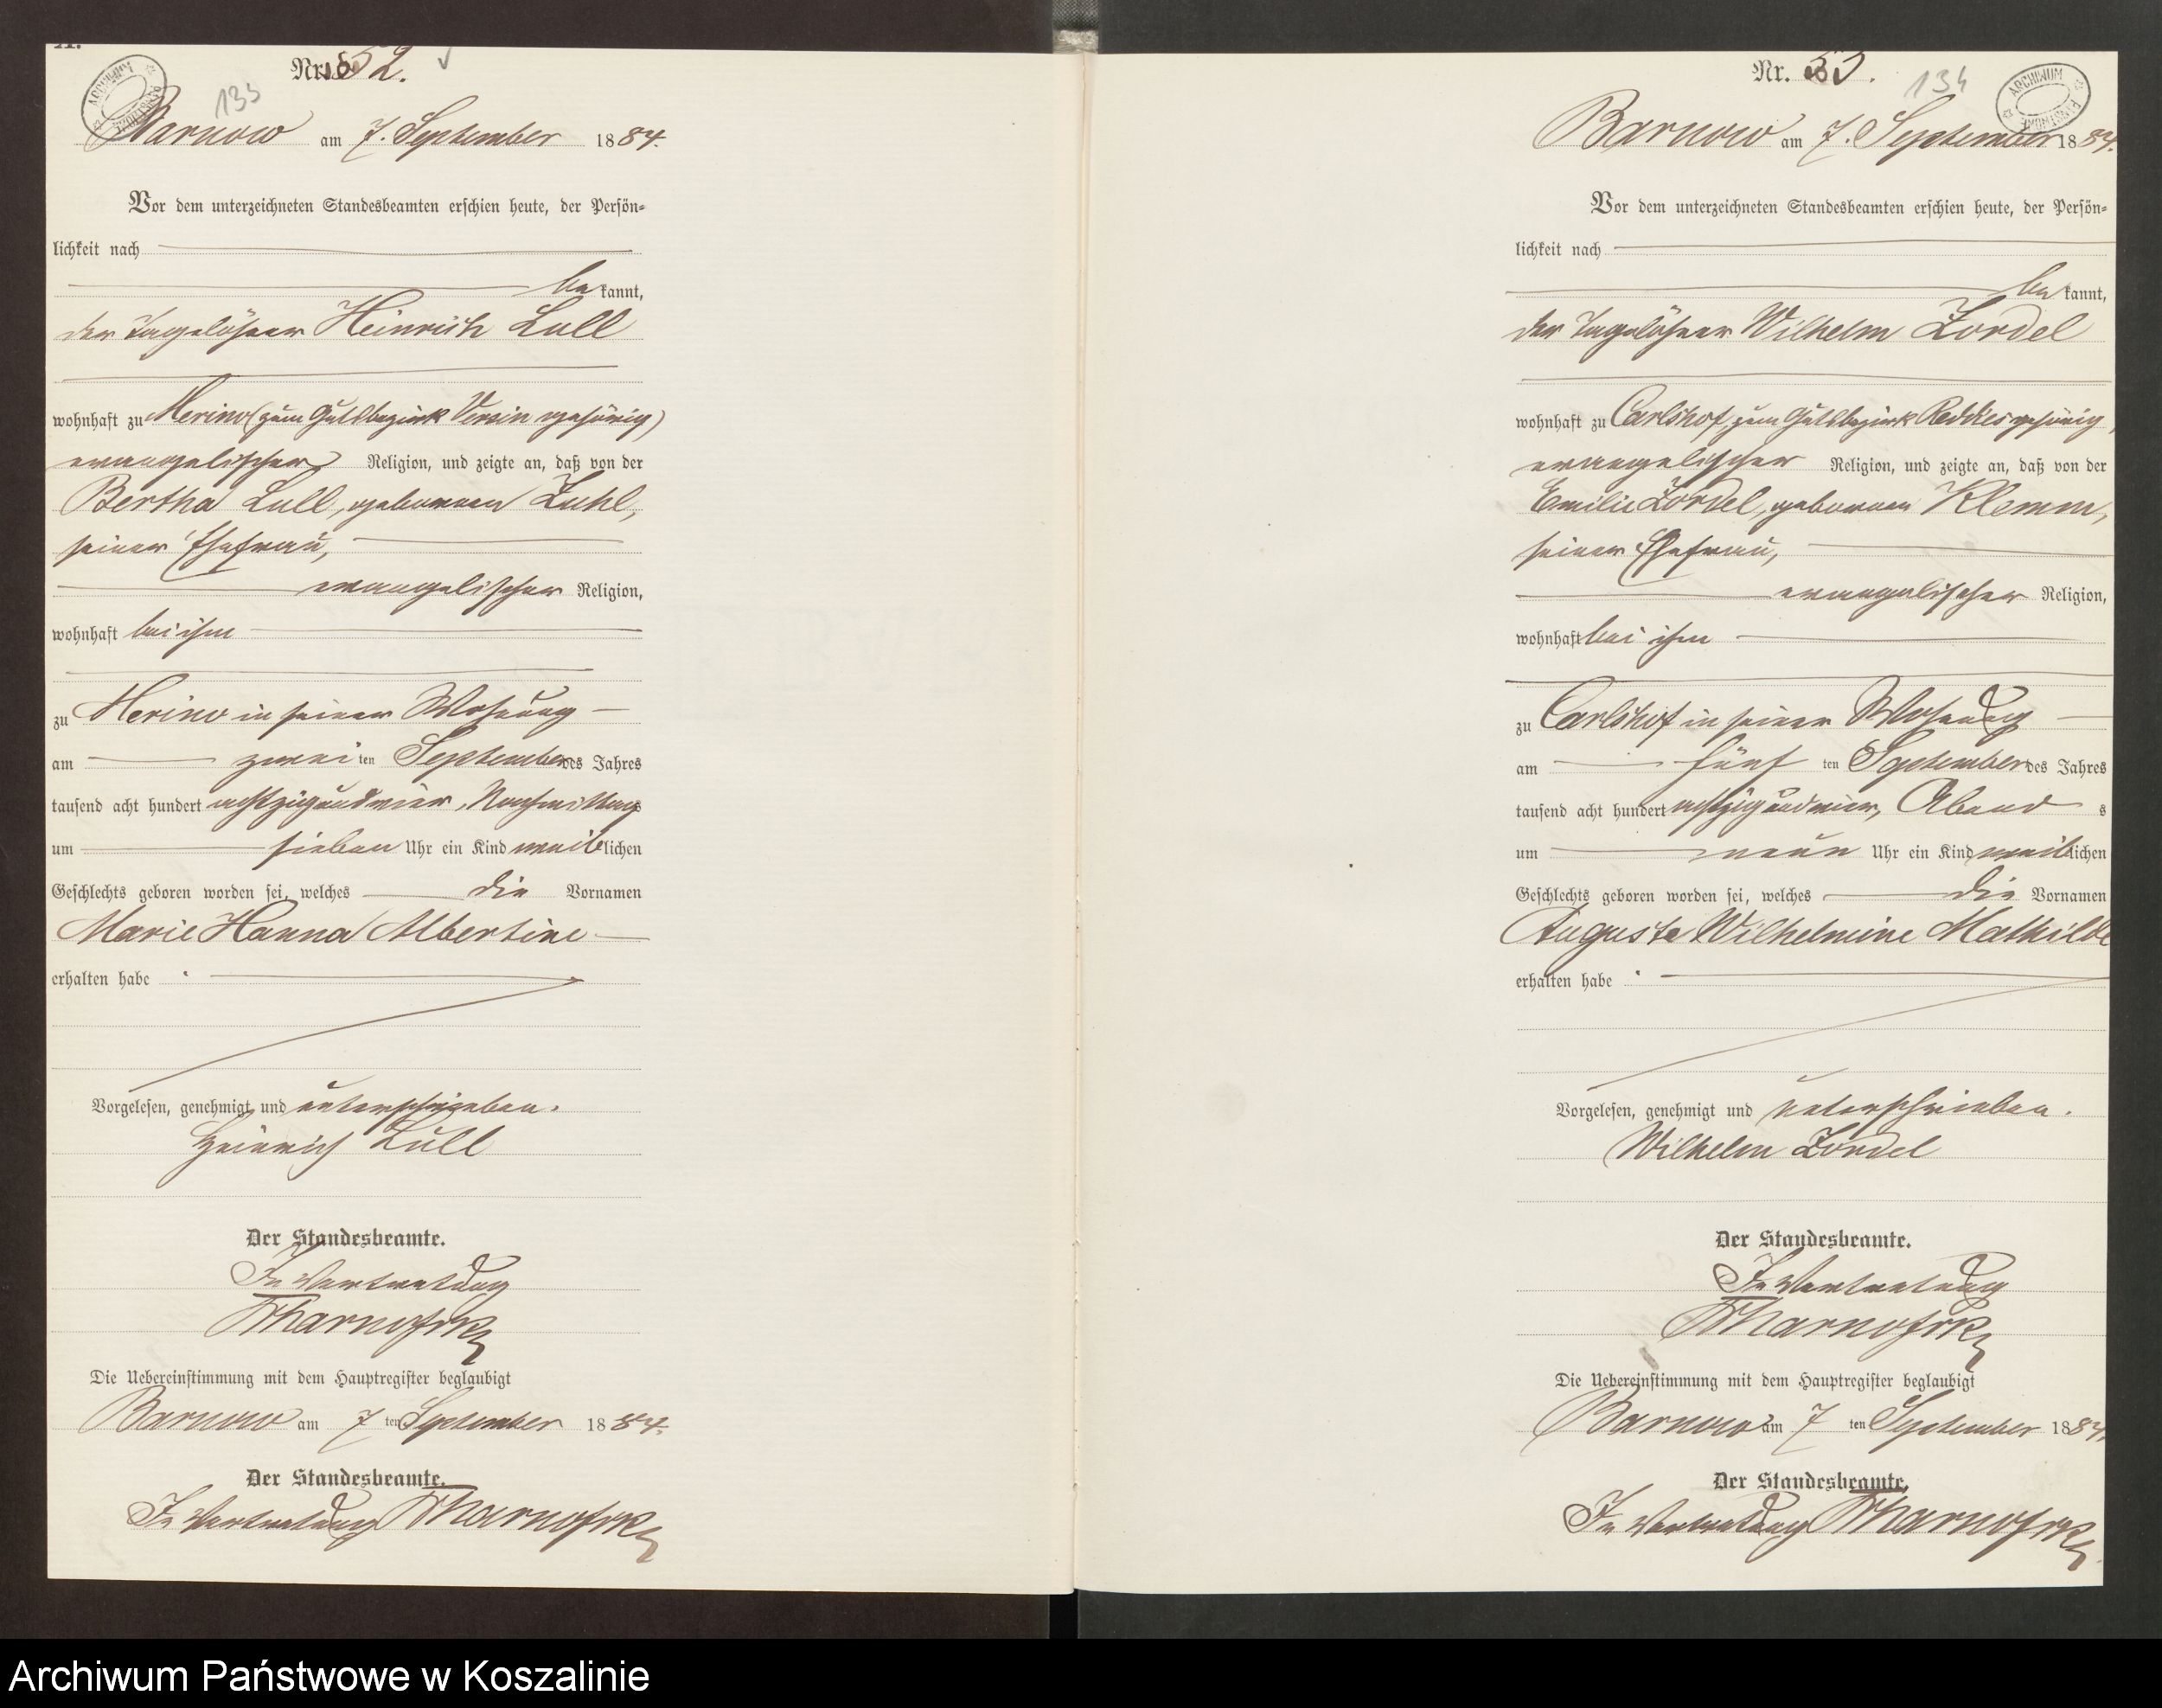 Nr. 52.
133
ARCHIWUM
Barnow am 7. September 1884.
Vor dem unterzeichneten Standesbeamten erschien heute, der Persön-
lichkeit nach
be kannt,
der Tagelöhner Heinrich Lull
wohnhaft zu Merino (zum Gutsbezirk Versin gehörig)
evangelischer Religion, und zeigte an, daß von der
Bertha Lull, geborenen Zuhl,
seiner Ehefrau,
evangelischer Religion,
wohnhaft bei ihm
zu Merino in seiner Wohnung
am zwei ten September des Jahres
tausend acht hundert achtzig und vier, Nachmittags
um sieben Uhr ein Kind weiblichen
Geschlechts geboren worden sei, welches die Vornamen
Marie Hanna Albertine
erhalten habe.
Vorgelesen, genehmigt und unterschrieben.
Heinrich Lull
Der Standesbeamte.
In Vertretung
Die Uebereinstimmung mit dem Hauptregister beglaubigt
Barnow am 7 ten September 1884.
Der Standesbeamte.
In Vertretung
Nr. 53.
134
ARCHIWUM
Barnow am 7. September 1884.
Vor dem unterzeichneten Standesbeamten erschien heute, der Persön-
lichkeit nach
be kannt,
der Tagelöhner Wilhelm Zordel
wohnhaft zu Carlshof, zum Gutsbezirk Reddies gehörig,
evangelischer Religion, und zeigte an, daß von der
Emilie Zordel, geborenen Klemm,
seiner Ehefrau,
evangelischer Religion,
wohnhaft bei ihm
zu Carlshof in seiner Wohnung
am fünf ten September des Jahres
tausend acht hundert achtzig und vier, Abends
um neun Uhr ein Kind weiblichen
Geschlechts geboren worden sei, welches die Vornamen
Auguste Wilhelmine Mathilde
erhalten habe.
Vorgelesen, genehmigt und unterschrieben.
Wilhelm Zordel
Der Standesbeamte.
In Vertretung
Die Uebereinstimmung mit dem Hauptregister beglaubigt
Barnow am 7 ten September 1884.
Der Standesbeamte.
In Vertretung
Archiwum Państwowe w Koszalinie